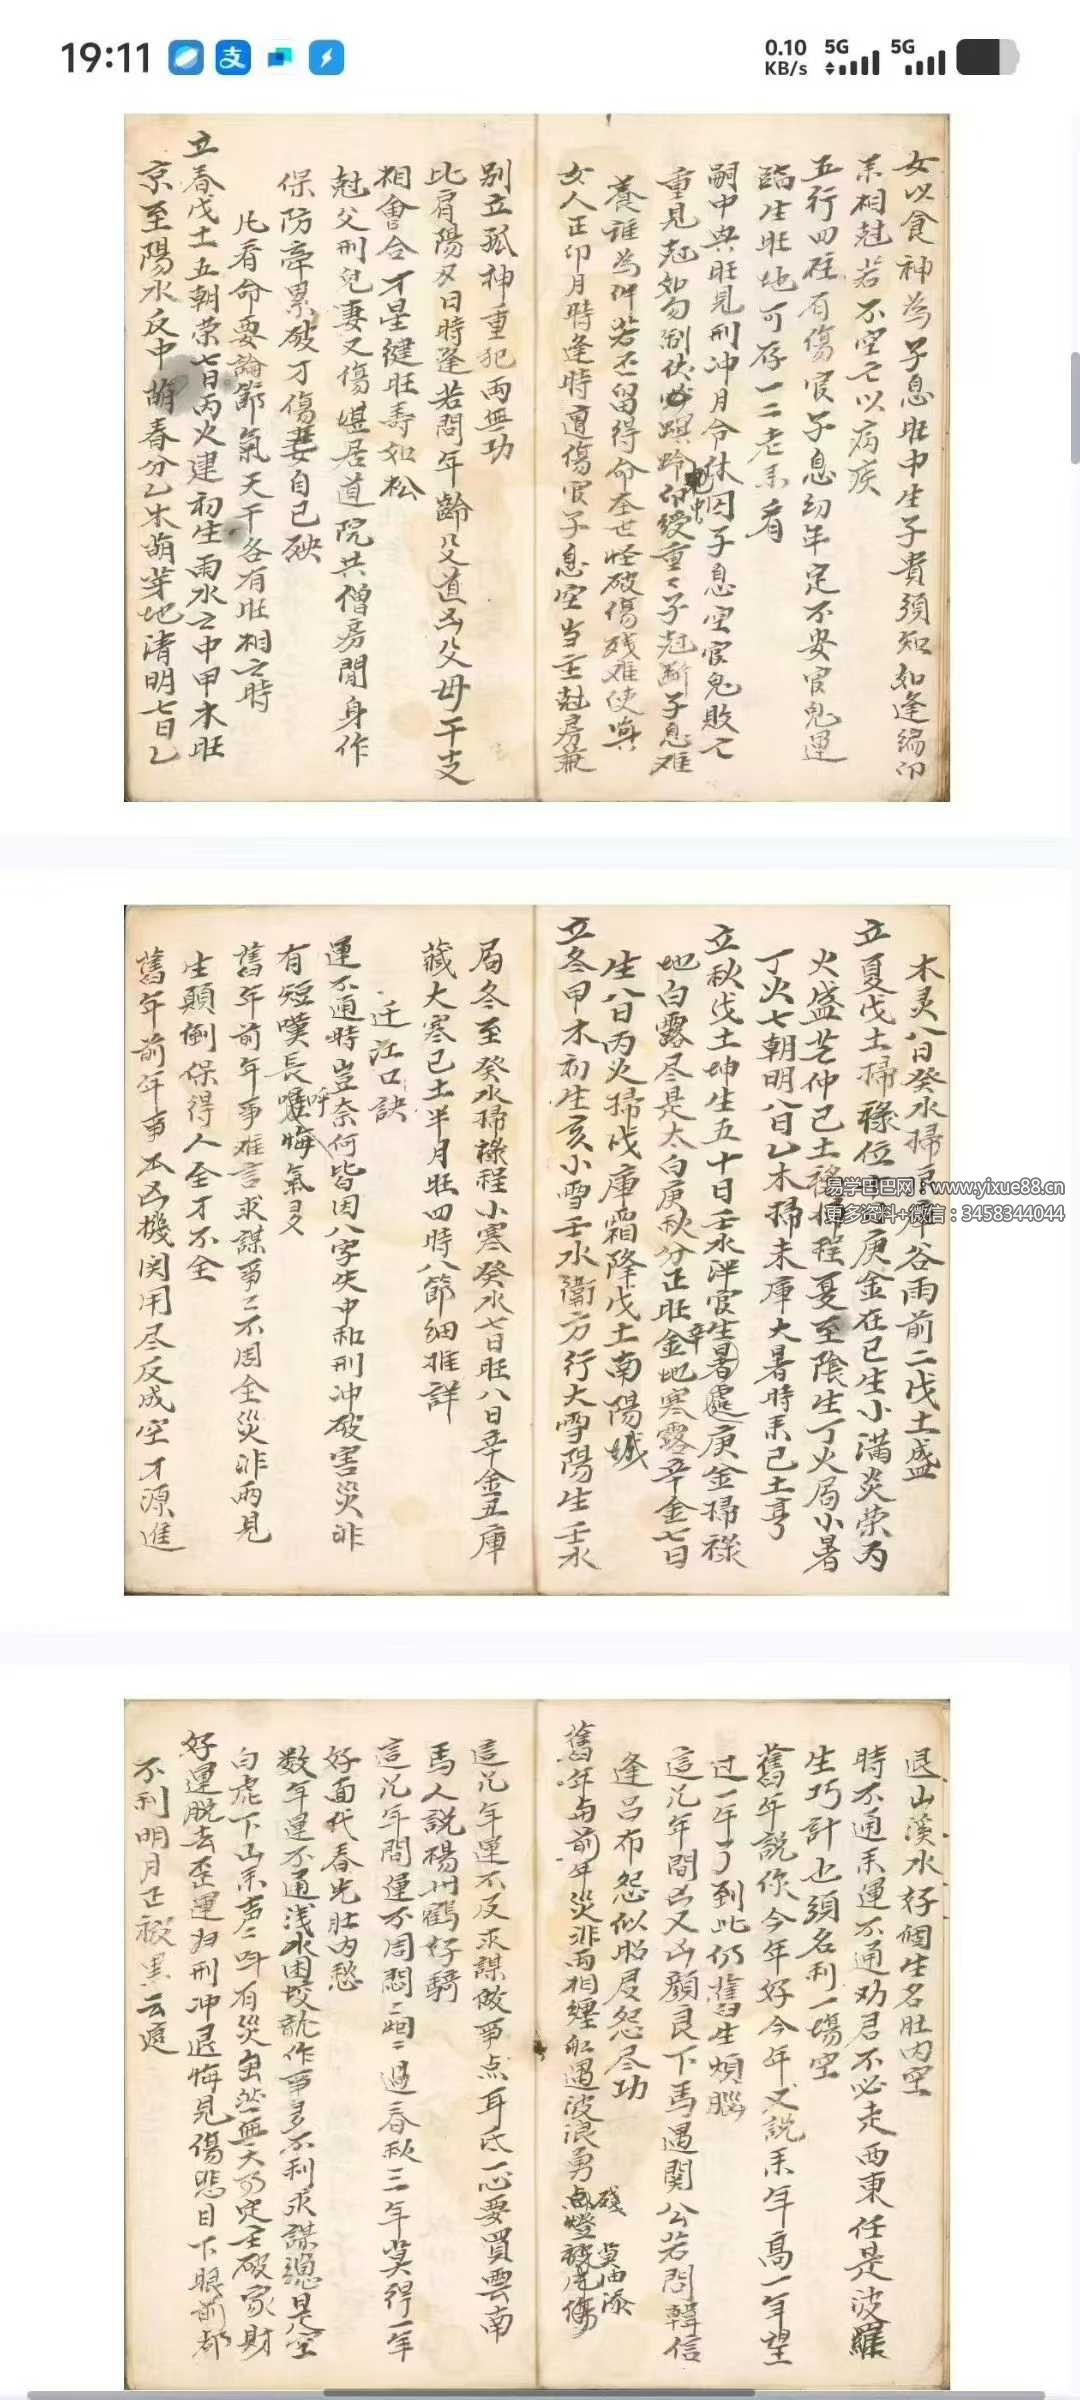 19:11
0.10 KB/s 5G 5G
女以食神為子息旺中生子貴須知如逢偏印
来相尅若不空亡以病疾
五行四柱有傷官子息幼年定不安官鬼運
臨生旺地可存一二老来看
嗣中與旺見刑冲月令休囚子息空官鬼敗亡
重見尅如勿制伏必螟蛉印綬重々子尅断子息难
養誰為伴若还留得命在世怪破傷残难使與
女人正印月時逢時遭傷官子息空当主尅房兼
别立孤神重犯两無功
比肩陽刃日時逢若問年齡及道凶父母干支
相會合才星健旺壽如松
尅父刑兒妻又傷堪居道院共僧房閒身作
保防牵累破才傷妻自己殃
凡看命要論節氣天干各有旺相之時
立春戊土五朝荣七日丙火建初生雨水之中甲木旺
京至陽水反中萌春分乙木萌芽地清明七日乙
木灵八日癸水掃京庫谷雨前二戊土盛
立夏戊土掃祿位庚金在巳生小满炎荣丙
火盛芒仲己土移掃程夏至陰生丁火局小暑
丁火七朝明八日乙木掃未庫大暑時来己土亨
立秋戊土坤生五十日壬水泮官生暑處庚金掃祿
地白露尽是太白庚秋分正旺辛金地寒露辛金七日
生八日丙火掃戊庫霜降戊土南陽城
立冬甲木初生亥小雪壬水衛方行大雪陽生壬水
局冬至癸水掃祿程小寒癸水七日旺八日辛金丑庫
藏大寒己土半月旺四時八節細推詳
迁江口訣
運不通時豈奈何皆因八字失中和刑冲破害災非
有短嘆長呼悔氣多
舊年前年事难言求謀事々不周全災非两見
生顛倒保得人全才不全
舊年前年事不凶機関用尽反成空才源進
退山溪水好個生名肚内空
時不通来運不通劝君不必走西東任是波羅
生巧計也須名利一場空
舊年説你今年好今年又説来年高一年望
过一年了到此仍舊生煩腦
這几年間凶又凶顔良下馬遇関公若問韓信
逢吕布怨似昭君怨尽功
舊年与前年災非两相纏船遇波浪勇点燈
這几年運不反求謀做事点耳氐一心要買雲南
馬人説楊州鶴好騎
這几年間運不周悶々姻々過春秋三年莫得一年
好面代春光肚内愁
数年運不通浅水困蛟龍作事多不利求謀總是空
白虎下山来声々呌有災虫然無大的定主破家財
好運脱去歪運归刑冲退悔見傷悲目下眼前都
不利明月正被黑云遮
易学巴巴网：www.yixue88.cn
更多资料+微信：3458344044